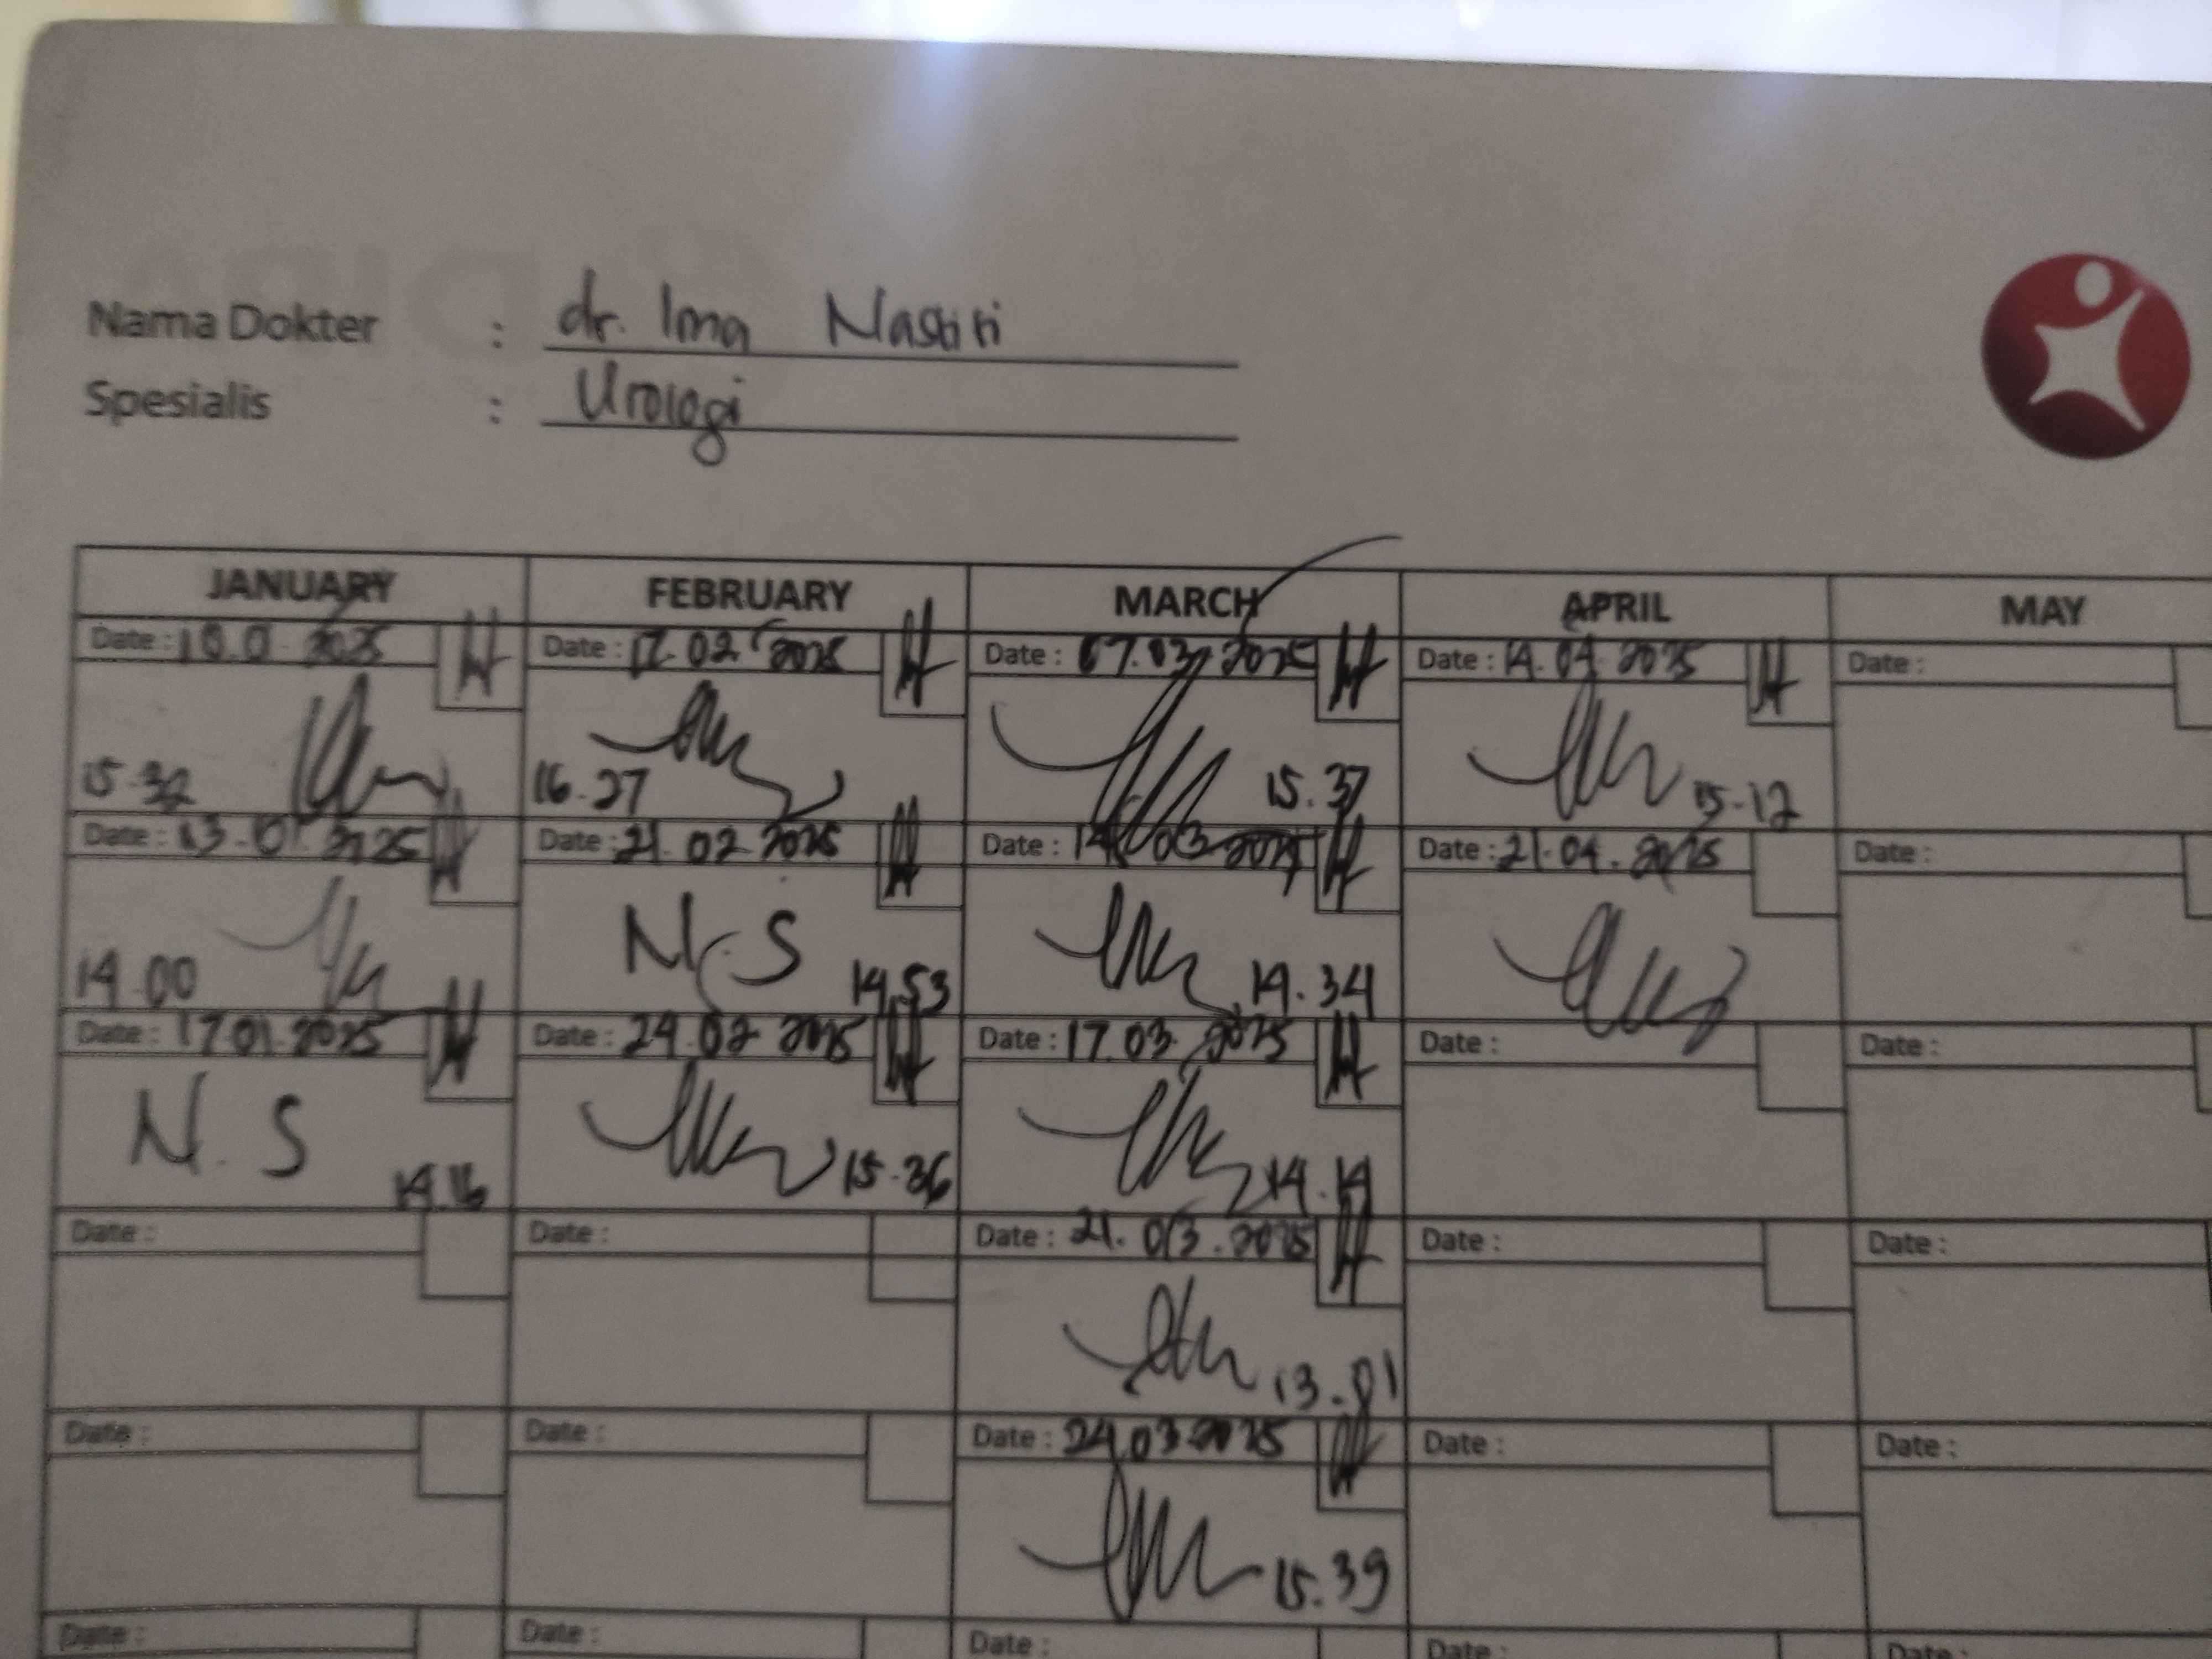 Nama Dokter : dr. Ima Nastiti
Spesialis : Urologi
JANUARY FEBRUARY MARCH APRIL MAY
Date : 10.0 2025 Date : 17.02 2025 Date : 07.03 2025 Date : 14.04 2025 Date :
15.32 16.27 15.37 15.12
Date : 13.01 2025 Date : 21.02 2025 Date : 14.03 2025 Date : 21.04.2025 Date :
14.00 N.S 14.53 14.34
Date : 17.01.2025 Date : 24.02 2025 Date : 17.03.2025 Date : Date :
N.S 14.16 15.36 14.14
Date : Date : Date : 21.03.2025 Date : Date :
13.01
Date : Date : Date : 24.03 2025 Date : Date :
15.39
Date : Date : Date : Date : Date :